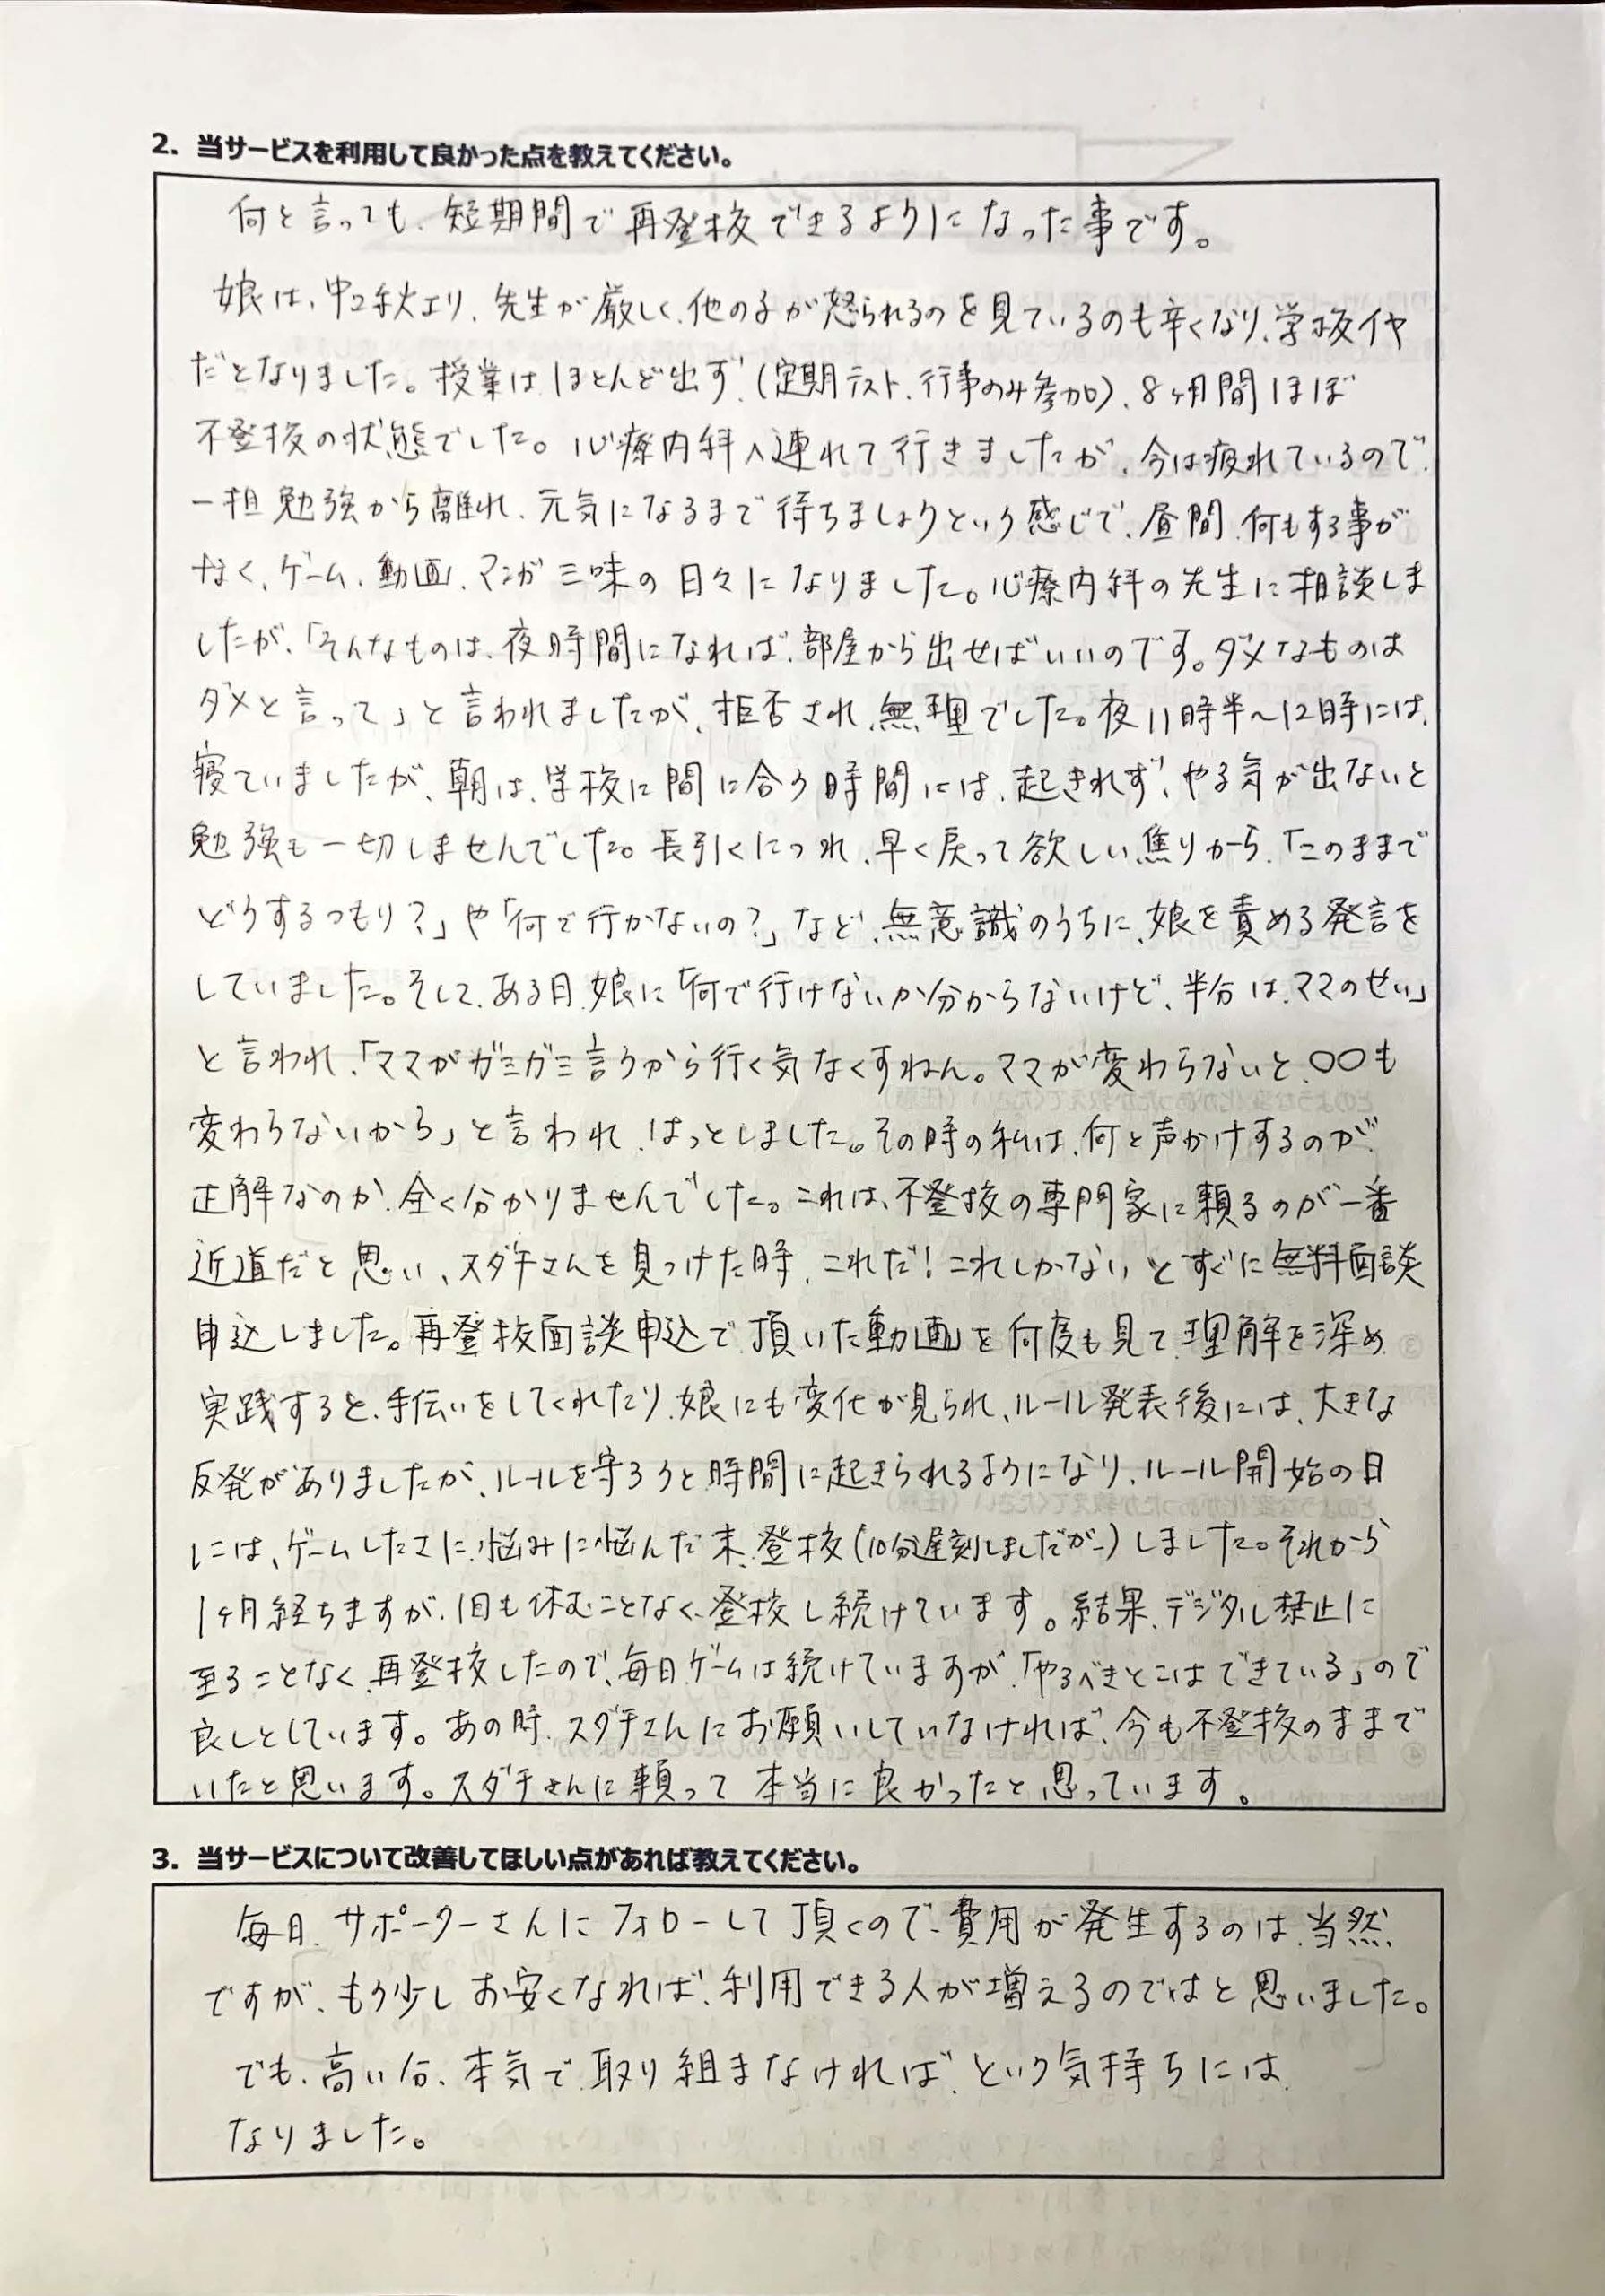 2. 当サービスを利用して良かった点を教えてください。
何と言っても、短期間で再登校できるようになった事です。
娘は、中2秋より、先生が厳しく、他の子が怒られるのを見ているのも辛くなり、学校イヤ
だとなりました。授業は、ほとんど出ず、(定期テスト、行事のみ参加)、8ヶ月間ほぼ
不登校の状態でした。心療内科へ連れて行きましたが、今は疲れているので、
一担勉強から離れ、元気になるまで待ちましょうという感じで、昼間、何もする事が
なく、ゲーム、動画、マンガ三味の日々になりました。心療内科の先生に相談しま
したが、「そんなものは、夜時間になれば、部屋から出せばいいのです。ダメなものは
ダメと言って」と言われましたが、拒否され、無理でした。夜11時半～12時には、
寝ていましたが、朝は、学校に間に合う時間には、起きれず、やる気が出ないと
勉強も一切しませんでした。長引くにつれ、早く戻って欲しい焦りから、「このままで
どうするつもり?」や「何で行かないの?」など、無意識のうちに、娘を責める発言を
していました。そして、ある日、娘に「何で行けないか分からないけど、半分は、ママのせい」
と言われ、「ママがガミガミ言うから行く気なくすねん。ママが変わらないと、〇〇も
変わらないから」と言われ、はっとしました。その時の私は、何と声かけするのが、
正解なのか、全く分かりませんでした。これは、不登校の専門家に頼るのが一番
近道だと思い、スダチさんを見つけた時、これだ!これしかない、とすぐに無料面談
申込しました。再登校面談申込で、頂いた動画を何度も見て、理解を深め、
実践すると、手伝いをしてくれたり、娘にも変化が見られ、ルール発表後には、大きな
反発がありましたが、ルールを守ろうと時間に起きられるようになり、ルール開始の日
には、ゲームしたさに、悩みに悩んだ末、登校(10分遅刻しましたが-)しました。それから
1ヶ月経ちますが、1日も休むことなく、登校し続けています。結果、デジタル禁止に
至ることなく、再登校したので、毎日ゲームは続けていますが、「やるべきとこはできている」ので
良しとしています。あの時、スダチさんにお願いしていなければ、今も不登校のままで
いたと思います。スダチさんに頼って本当に良かったと思っています。
3. 当サービスについて改善してほしい点があれば教えてください。
毎日、サポーターさんにフォローして頂くので、費用が発生するのは、当然
ですが、もう少しお安くなれば、利用できる人が増えるのではと思いました。
でも、高い分、本気で取り組まなければ、という気持ちには、
なりました。